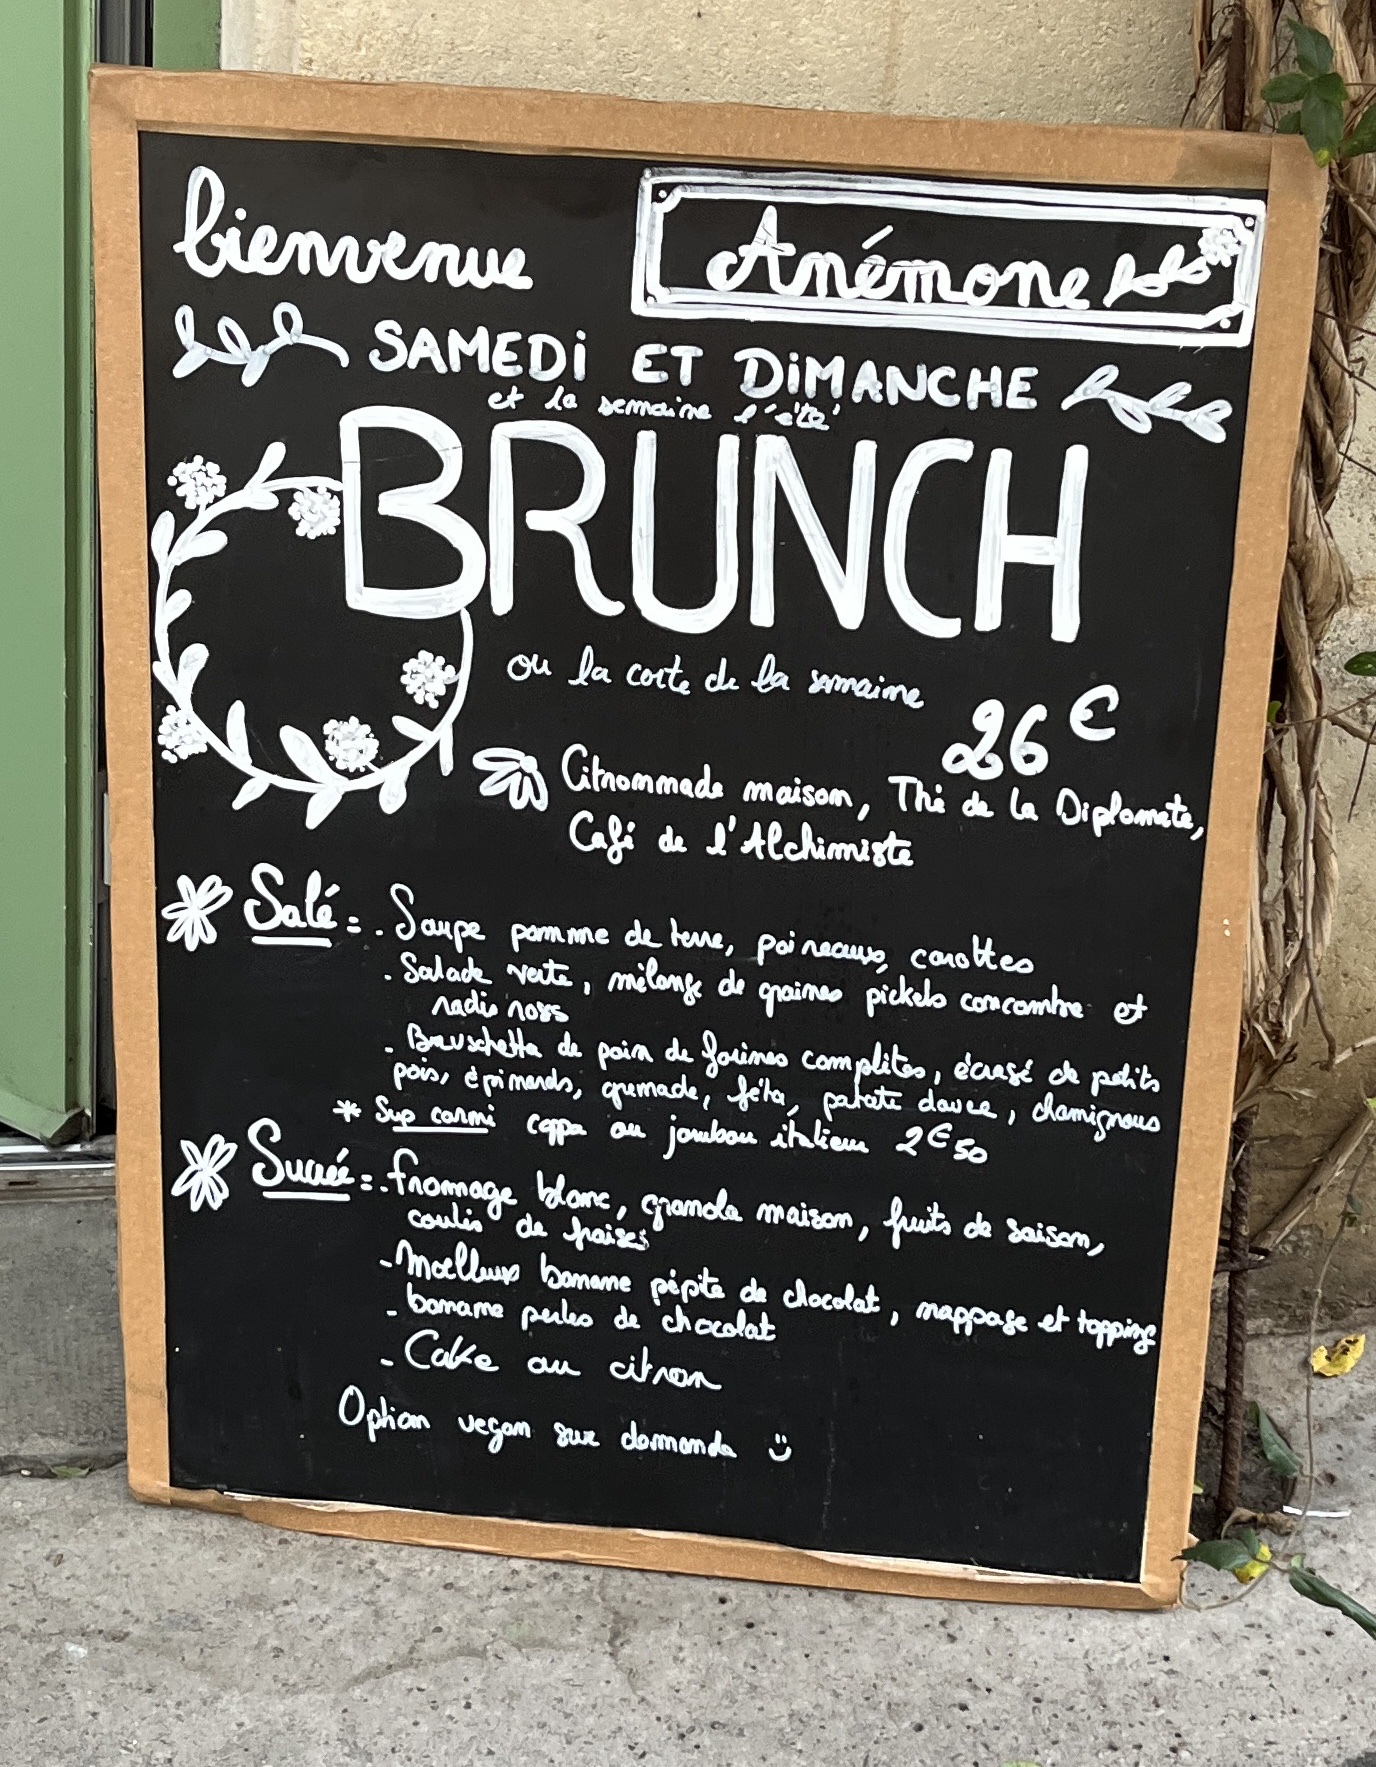 bienvenue
Anémone
SAMEDi ET DiMANCHE
et la semaine l'été
BRUNCH
ou la carte de la semaine
26€
Citronnade maison, Thé de la Diplomate,
Café de l'Alchimiste
Salé = . Soupe pomme de terre, poireaux, carottes
. Salade verte, mélange de graines pickels concombre et
radis noirs
. Bruschetta de pain de farines complètes, écrasé de petits
pois, épinards, grenade, féta, patate douce, champignons
* Sup carni coppa ou jambon italien 2€50
Sucrée = . fromage blanc, granola maison, fruits de saison,
coulis de fraises
- Moelleux banane pépite de chocolat, nappage et topping
- banane perles de chocolat
- Cake au citron
Option vegan sur demande :)